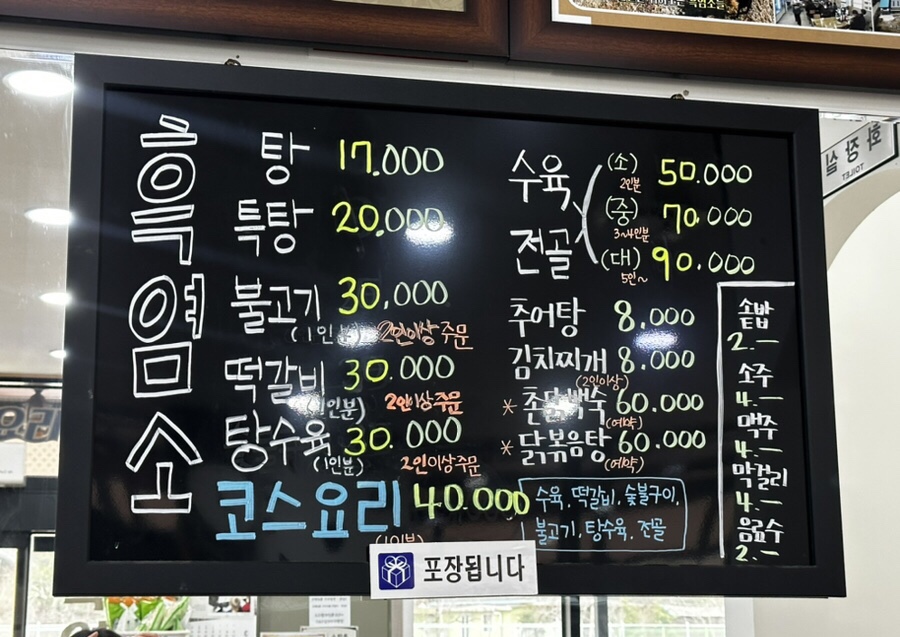 흑염소
탕 17.000
특탕 20.000
불고기 30.000
(1인분) 2인이상 주문
떡갈비 30.000
(1인분) 2인이상주문
탕수육 30.000
(1인분) 2인이상주문
코스요리 40.000
(1인분)
수육, 떡갈비, 숯불구이,
불고기, 탕수육, 전골
수육
전골
(소) 50.000
2인분
(중) 70.000
3~4인분
(대) 90.000
5인~
추어탕 8.000
김치찌개 8.000
(2인이상)
* 촌닭백숙 60.000
(예약)
* 닭볶음탕 60.000
(예약)
솥밥
2.-
소주
4.-
맥주
4.-
막걸리
4.-
음료수
2.-
포장됩니다
화장실
TOILET